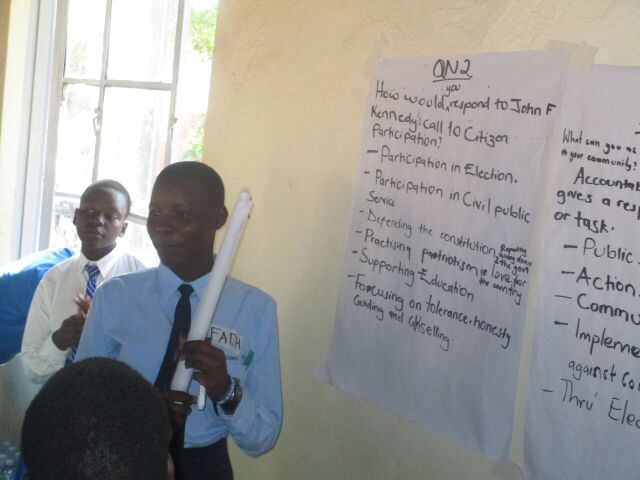 QN2
you
How would respond to John F
Kennedy's call to Citizen
Participation?
- Participation in Election.
- Participation in Civil public
Service
- Defending the constitution
- Practising patriotism ie love for
the country
- Supporting Education
- Focusing on tolerance, honesty
Guiding and
What can you as
in your community?
Accountab
gives a res
or task.
- Public
- Action.
- Commu
- Impleme
against co
- Thru' Elec
FAITH